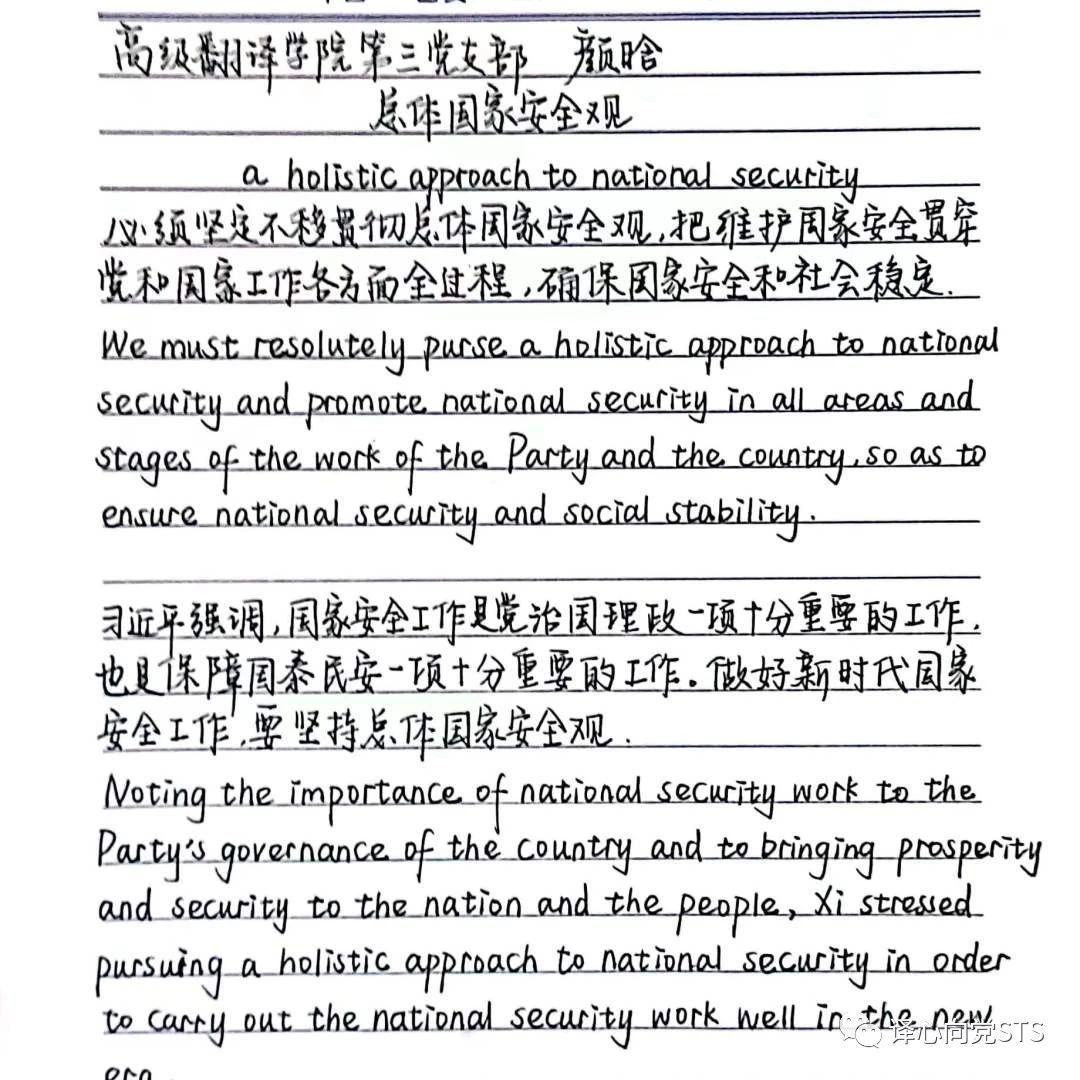 高级翻译学院第三党支部 颜晗
总体国家安全观
a holistic approach to national security
必须坚定不移贯彻总体国家安全观,把维护国家安全贯穿
党和国家工作各方面全过程,确保国家安全和社会稳定.
We must resolutely purse a holistic approach to national
security and promote national security in all areas and
stages of the work of the Party and the country, so as to
ensure national security and social stability.
习近平强调,国家安全工作是党治国理政一项十分重要的工作,
也是保障国泰民安一项十分重要的工作。做好新时代国家
安全工作,要坚持总体国家安全观.
Noting the importance of national security work to the
Party's governance of the country and to bringing prosperity
and security to the nation and the people, Xi stressed
pursuing a holistic approach to national security in order
to carry out the national security work well in the new
era.
译心向党STS